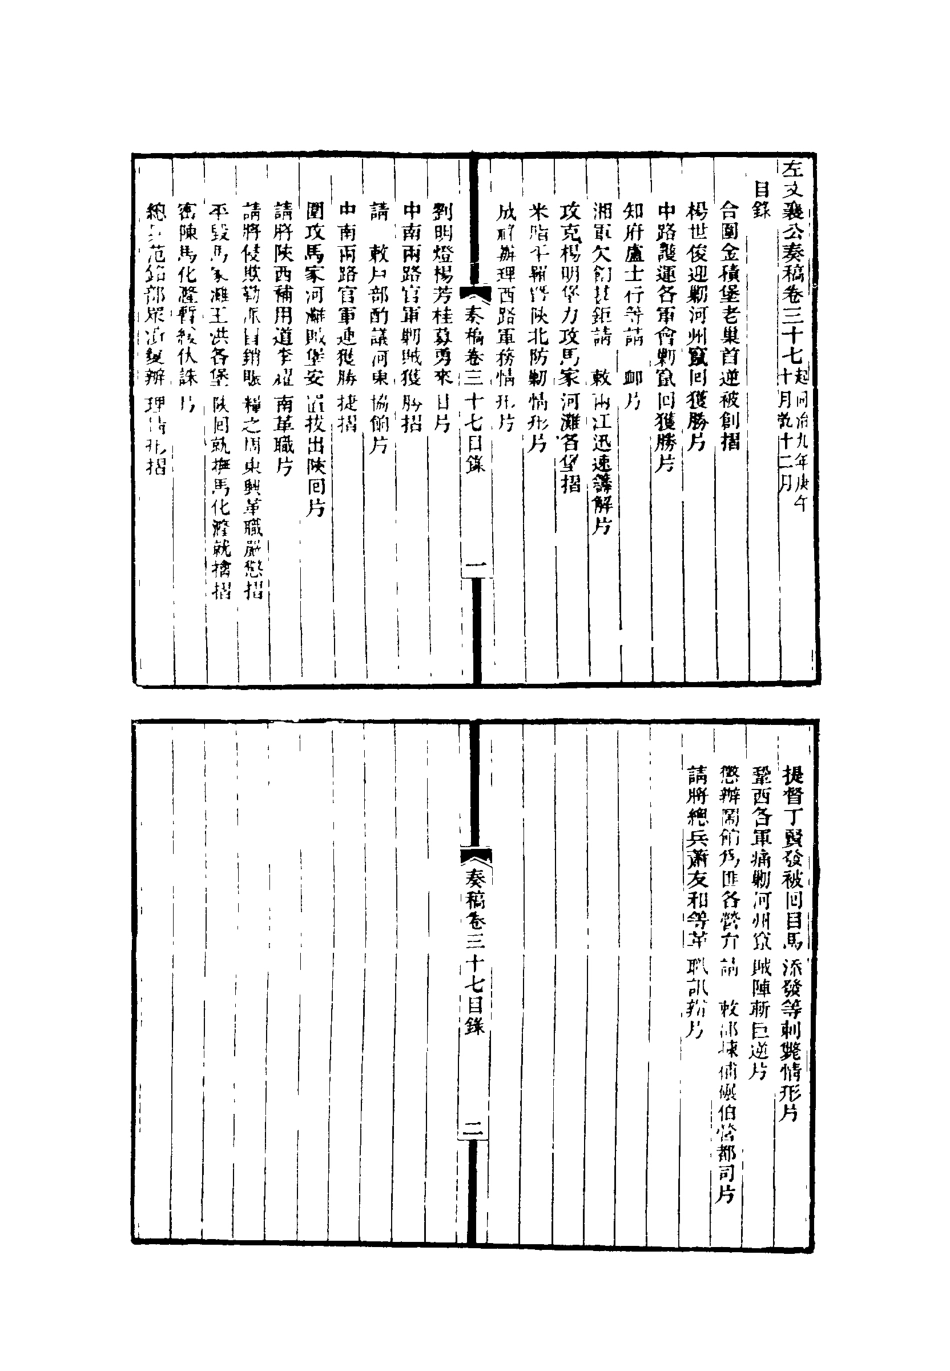 左文襄公奏稿卷三十七起同治九年庚午十月訖十二月
目錄
合圍金積堡老巢首逆被創摺
楊世俊迎勦河州竄回獲勝片
中路護運各軍會勦竄回獲勝片
知府盧士行等請 卹片
湘軍欠餉甚鉅請 敕兩江迅速籌解片
攻克楊明堡力攻馬家河灘各堡摺
米脂 陝北防勦情形片
成 辦理西路軍務情形片
奏稿卷三十七目錄
一
劉明燈楊芳桂募勇來甘片
中南兩路官軍勦賊獲勝摺
請 敕戶部酌議河東協餉片
中南兩路官軍連獲勝捷摺
圍攻馬家河灘賊堡安 拔出陝回片
請將陝西補用道李 革職片
請將侵欺勒派 銷賬糧之周東興革職嚴懲摺
平毀馬家灘王洪各堡陝回就撫馬化漋就擒摺
密陳馬化漋暫緩伏誅片
總兵范銘部眾 辦理情形摺
提督丁賢發被回目馬添發等刺斃情形片
鞏西各軍痛勦河州竄賊陣斬巨逆片
懲辦鬧餉 匪各營 請 敕部揀補碾伯營都司片
請將總兵蕭友和等革職訊辦片
奏稿卷三十七目錄
二